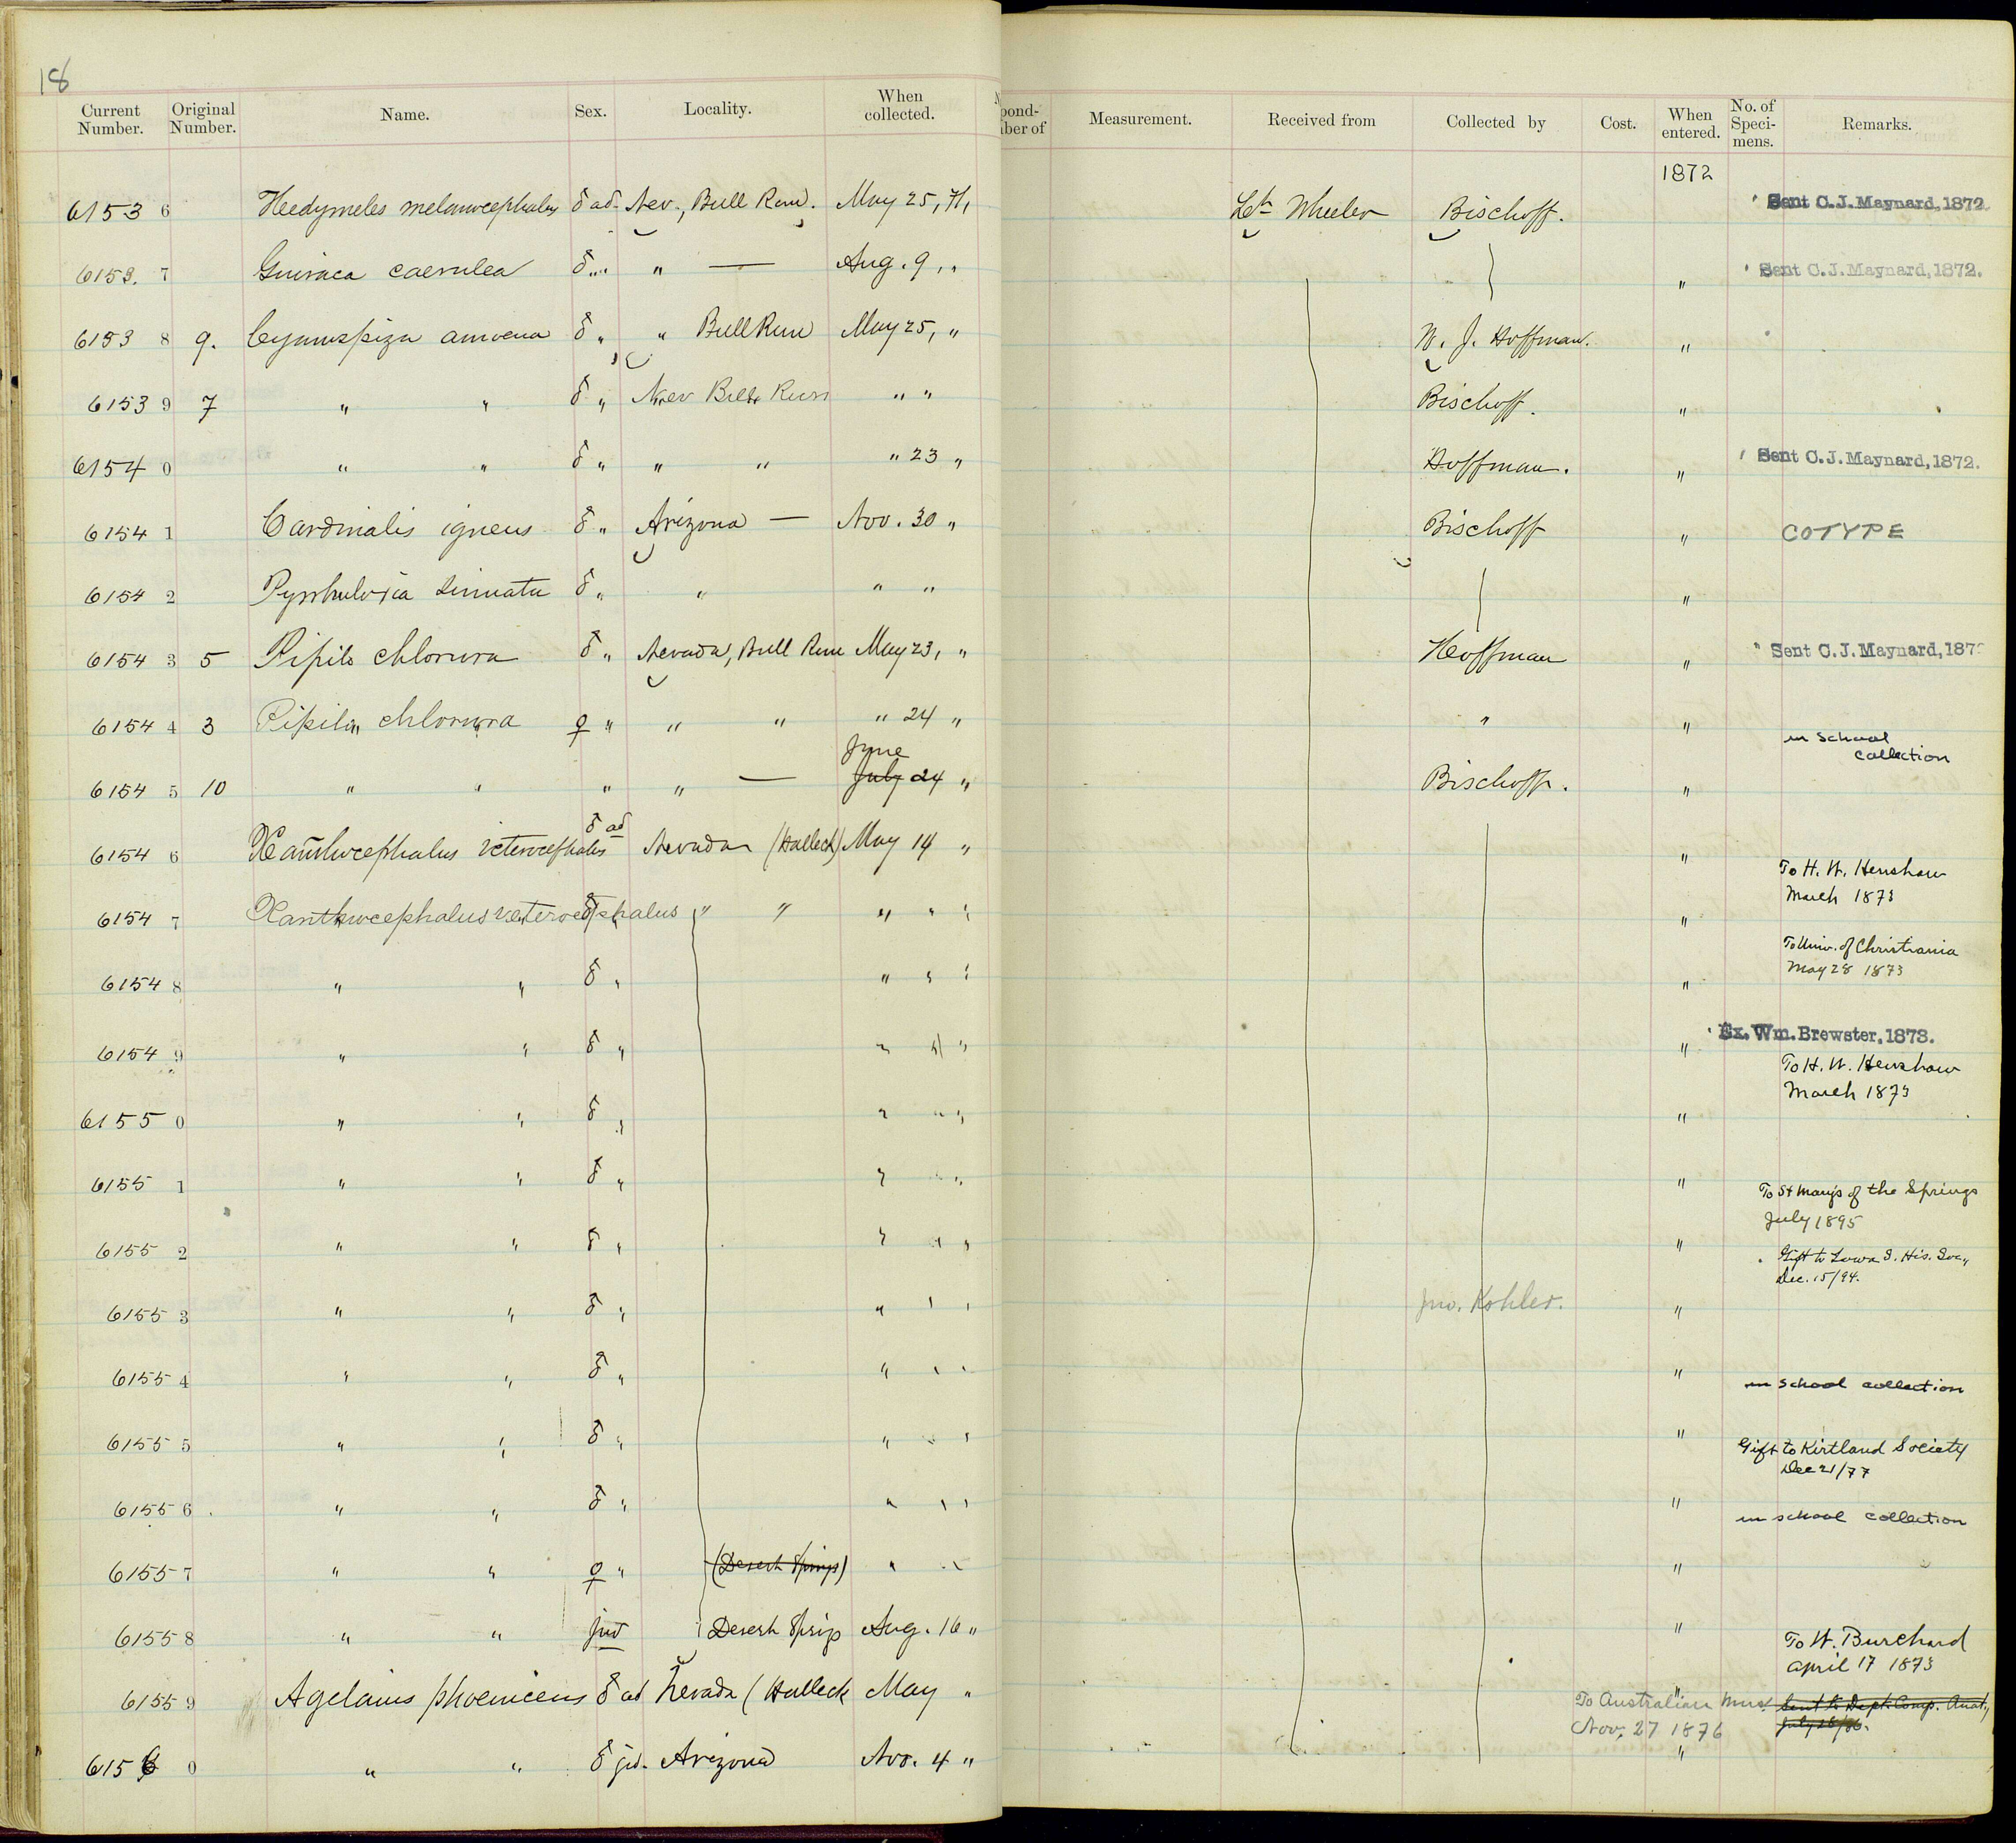 18
Current Number. Original Number. Name. Sex. Locality. When collected. pond- ber of Measurement. Received from Collected by Cost. When entered. No. of Speci- mens. Remarks.
1872
61536 Hedymeles melanocephalus ♂ ad. Nev., Bull Run. May 25, 71, Lt. Wheeler Bischoff. Sent C.J. Maynard, 1872.
61537 Guiraca caerulea ♂ " " — Aug. 9 " " Sent C.J. Maynard, 1872.
61538 9. Cyanospiza amoena ♂ " " Bull Run May 25, " W. J. Hoffman. "
61539 7 " " ♂ " Nev Bull Run " " Bischoff. "
61540 " " ♂ " " " " 23 " Hoffman. " Sent C.J. Maynard, 1872.
61541 Cardinalis igneus ♂ " Arizona — Nov. 30 " Bischoff " COTYPE
61542 Pyrrhuloxia sinuata ♂ " " " " "
61543 5 Pipilo chlorura ♂ " Nevada, Bull Run May 23, " Hoffman " Sent C.J. Maynard, 187
61544 3 Pipilo chlorura ♀ " " " " 24 " " " in school collection
61545 10 " " " " — June July 24 " Bischoff. "
61546 Xanthocephalus icterocephalus ♂ ad Nevada (Halleck) May 14 " " To H. W. Henshaw March 1873
61547 Xanthocephalus icterocephalus ♂ " " " " " " To Univ. of Christiania May 28 1873
61548 " " ♂ " " " " "
61549 " " ♂ " " " " " Ex. Wm. Brewster, 1873. To H. W. Henshaw March 1873
61550 " " ♂ " " " " "
61551 " " ♂ " " " " " To St Mary's of the Springs July 1895
61552 " " ♂ " " " " " Gift to Iowa S. His. Soc., Dec. 15/94.
61553 " " ♂ " " " " Jno. Kohler. "
61554 " " ♂ " " " " " in school collection
61555 " " ♂ " " " " " Gift to Kirtland Society Dec 21/77
61556 " " ♂ " " " " " in school collection
61557 " " ♀ " (Desert Springs) " " "
61558 " " juv Desert Sprigs Aug. 16 " " To W. Burchard April 17 1873
61559 Agelaius phoeniceus ♂ ad Nevada (Halleck May " " To Australian Mus. Nov. 27 1876 Sent to Dept. Comp. Anat., July 28/86.
61560 " " ♂ jd. Arizona Nov. 4 " "